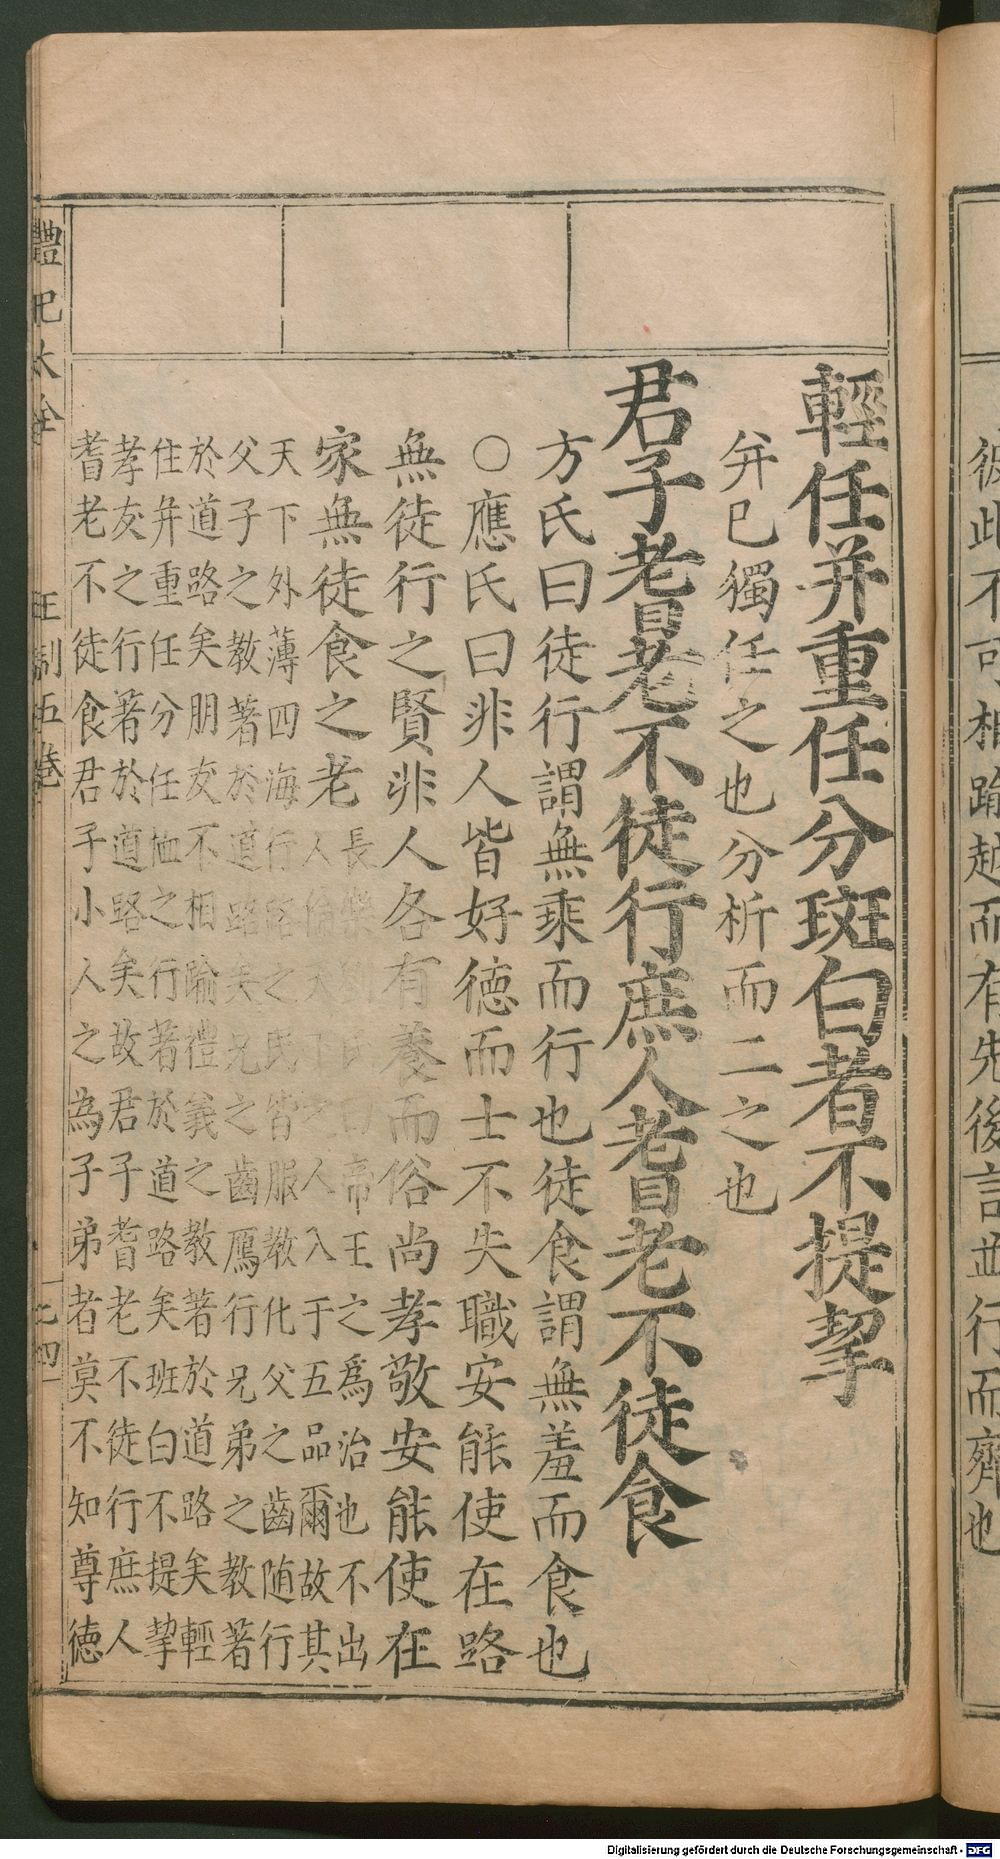 彼此不可相踰越而有先後言並行而齊也
輕任并重任分斑白者不提挈
并已獨任之也分析而二之也
君子耆老不徒行庶人耆老不徒食
方氏曰徒行謂無乘而行也徒食謂無羞而食也
○應氏曰非人皆好徳而士不失職安能使在路
無徒行之賢非人各有養而俗尚孝敬安能使在
家無徒食之老
長樂氏曰帝王之爲治也不出
人之人入于五品爾故其
天下外薄四海行路之民皆服教化父之齒随行
父子之教著於道路矣兄之齒鴈行兄弟之教著
於道路矣朋友不相踰禮義之教著於道路矣輕
住并重任分任恤之行著於道路矣班白不提挈
孝友之行著於道路矣故君子耆老不徒行庶人
耆老不徒食君子小人之為子弟者莫不知尊徳
禮記大全 王制五卷 七四
Digitalisierung gefördert durch die Deutsche Forschungsgemeinschaft - DFG